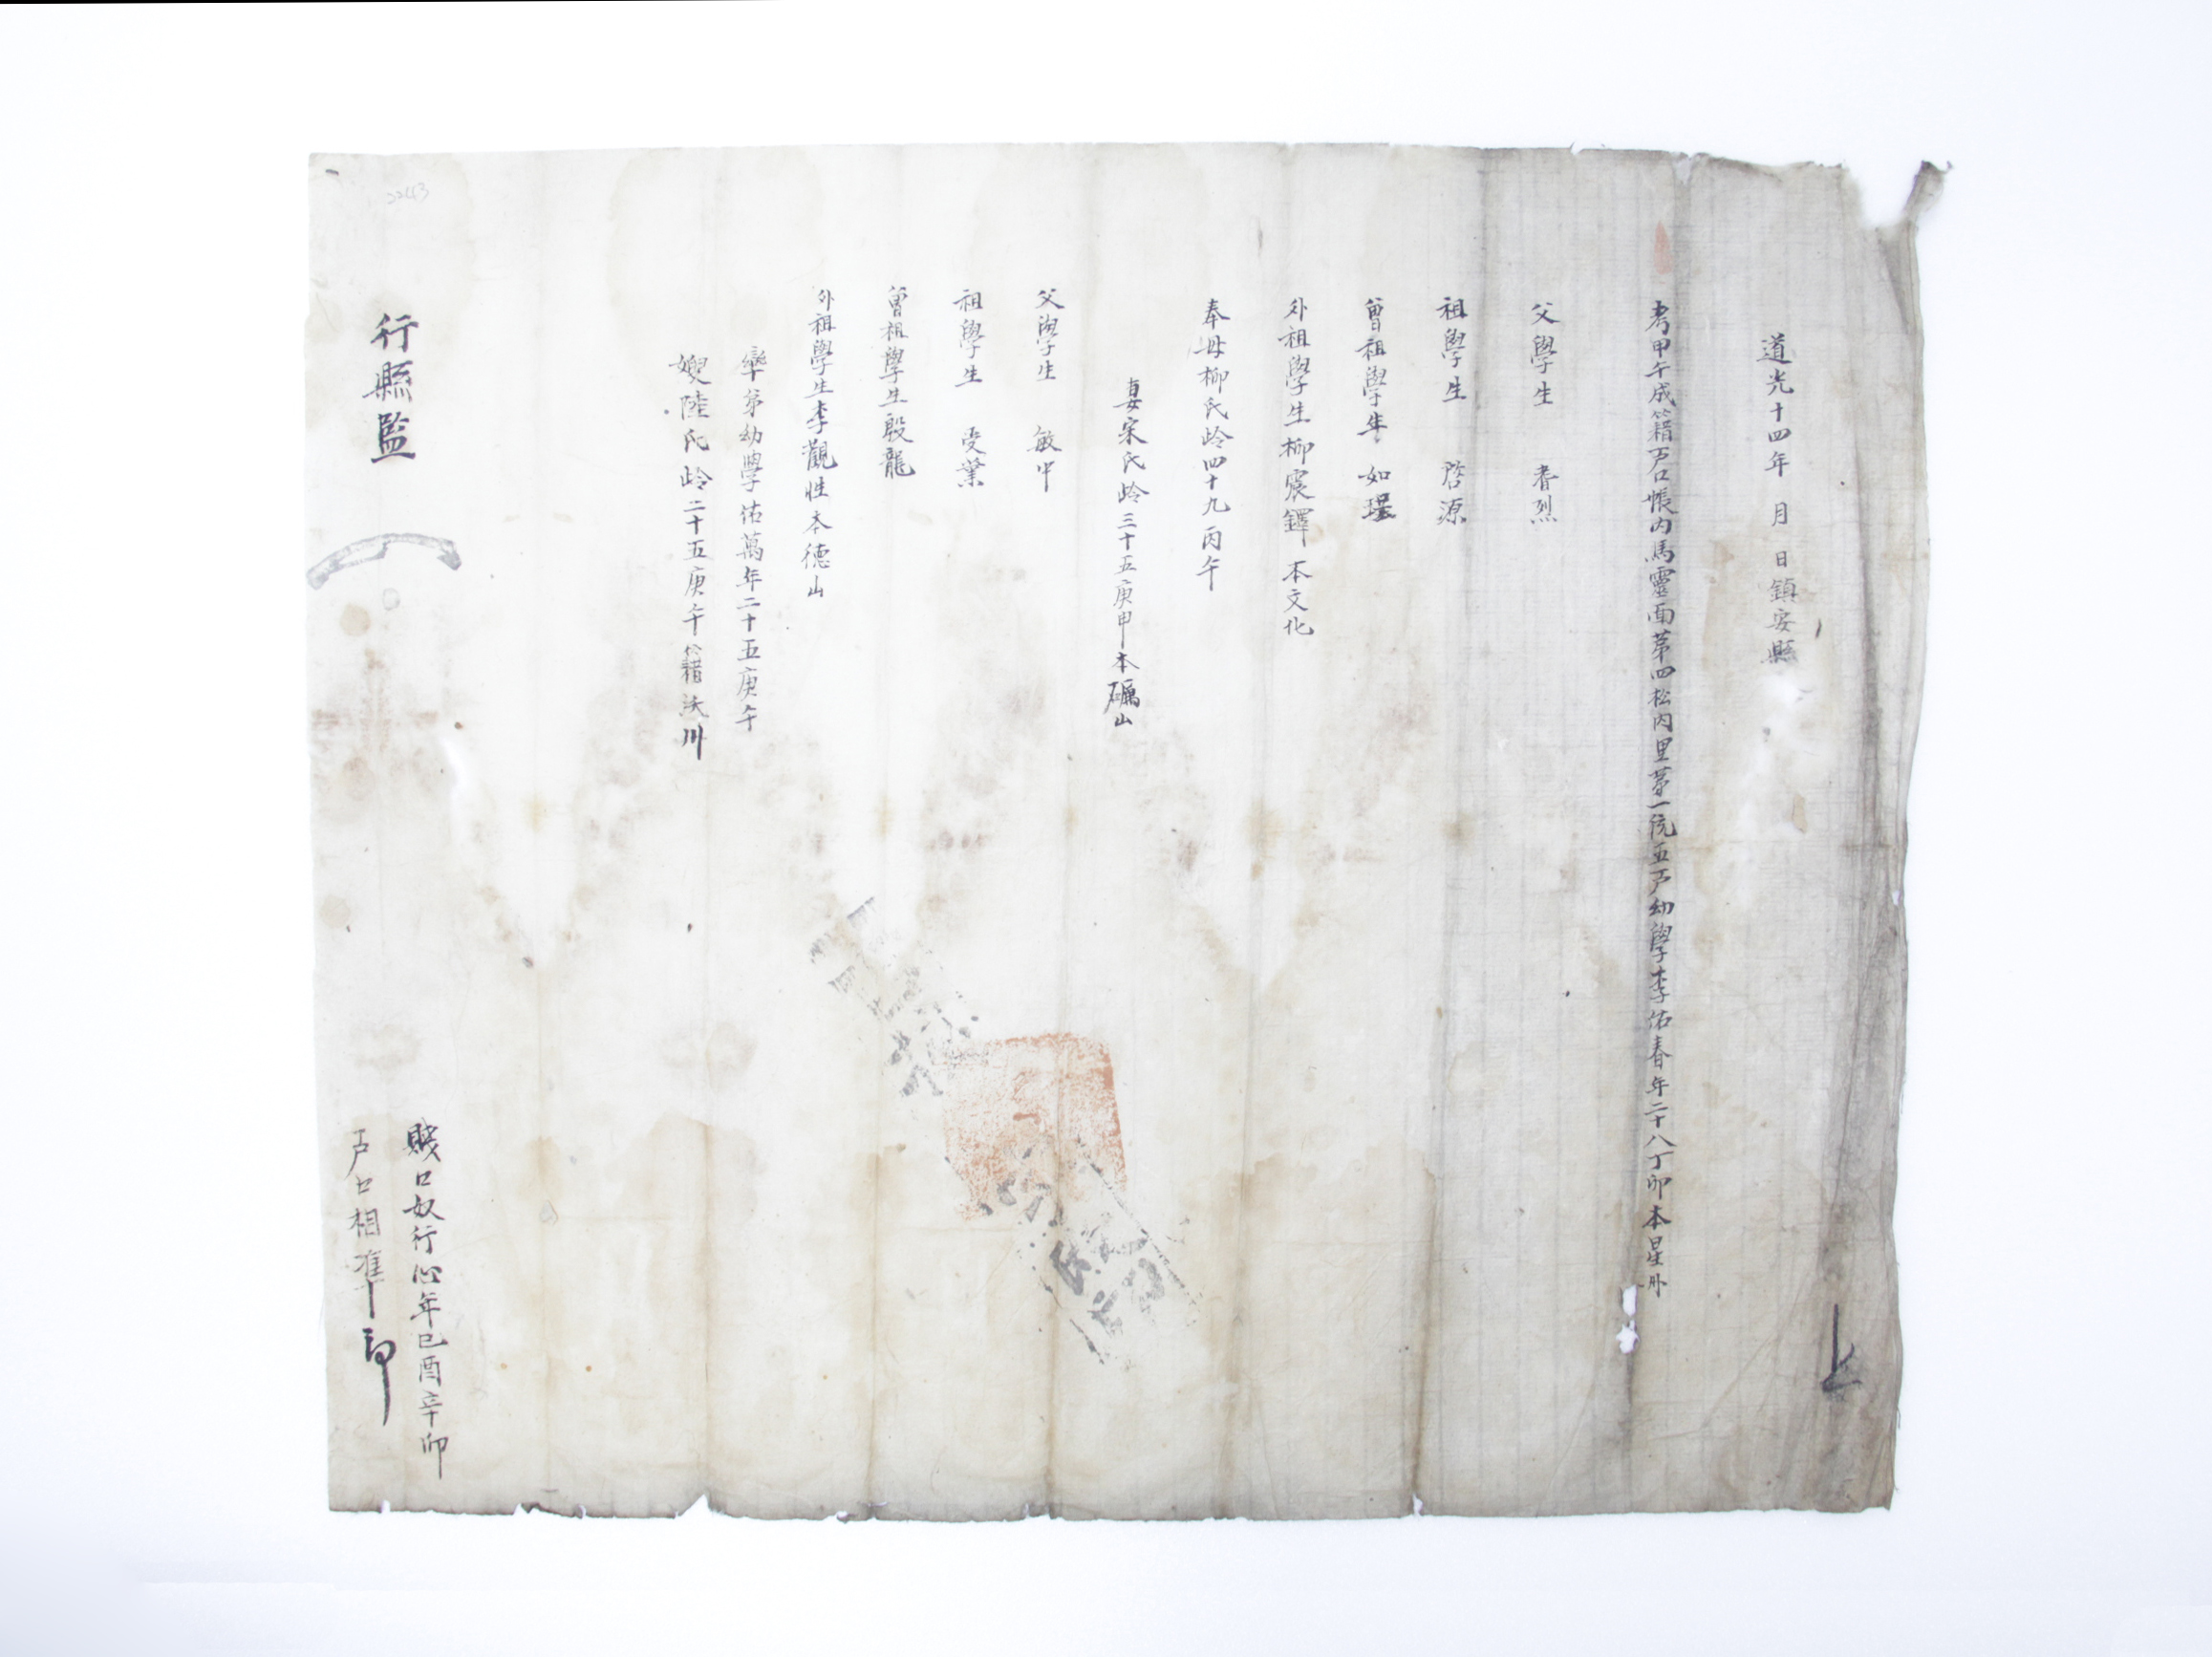 道光十四年 月 日鎮安縣
考甲午成籍戶口帳內馬靈面第四松內里第一統五戶幼學李佑春年二十八丁卯本星州
父學生 春烈
祖學生 啓源
曾祖學生 如環
外祖學生柳震鐸本文化
奉母柳氏齡四十九丙午
妻宋氏齡三十五庚申本礪山
父學生 敏中
祖學生 受業
曾祖學生殷龍
外祖學生李觀性本德山
率弟幼學佑萬年二十五庚午
嫂陸氏齡二十五庚午籍沃川
行縣監
賤口奴行心年己酉辛卯
戶口相準印
2243